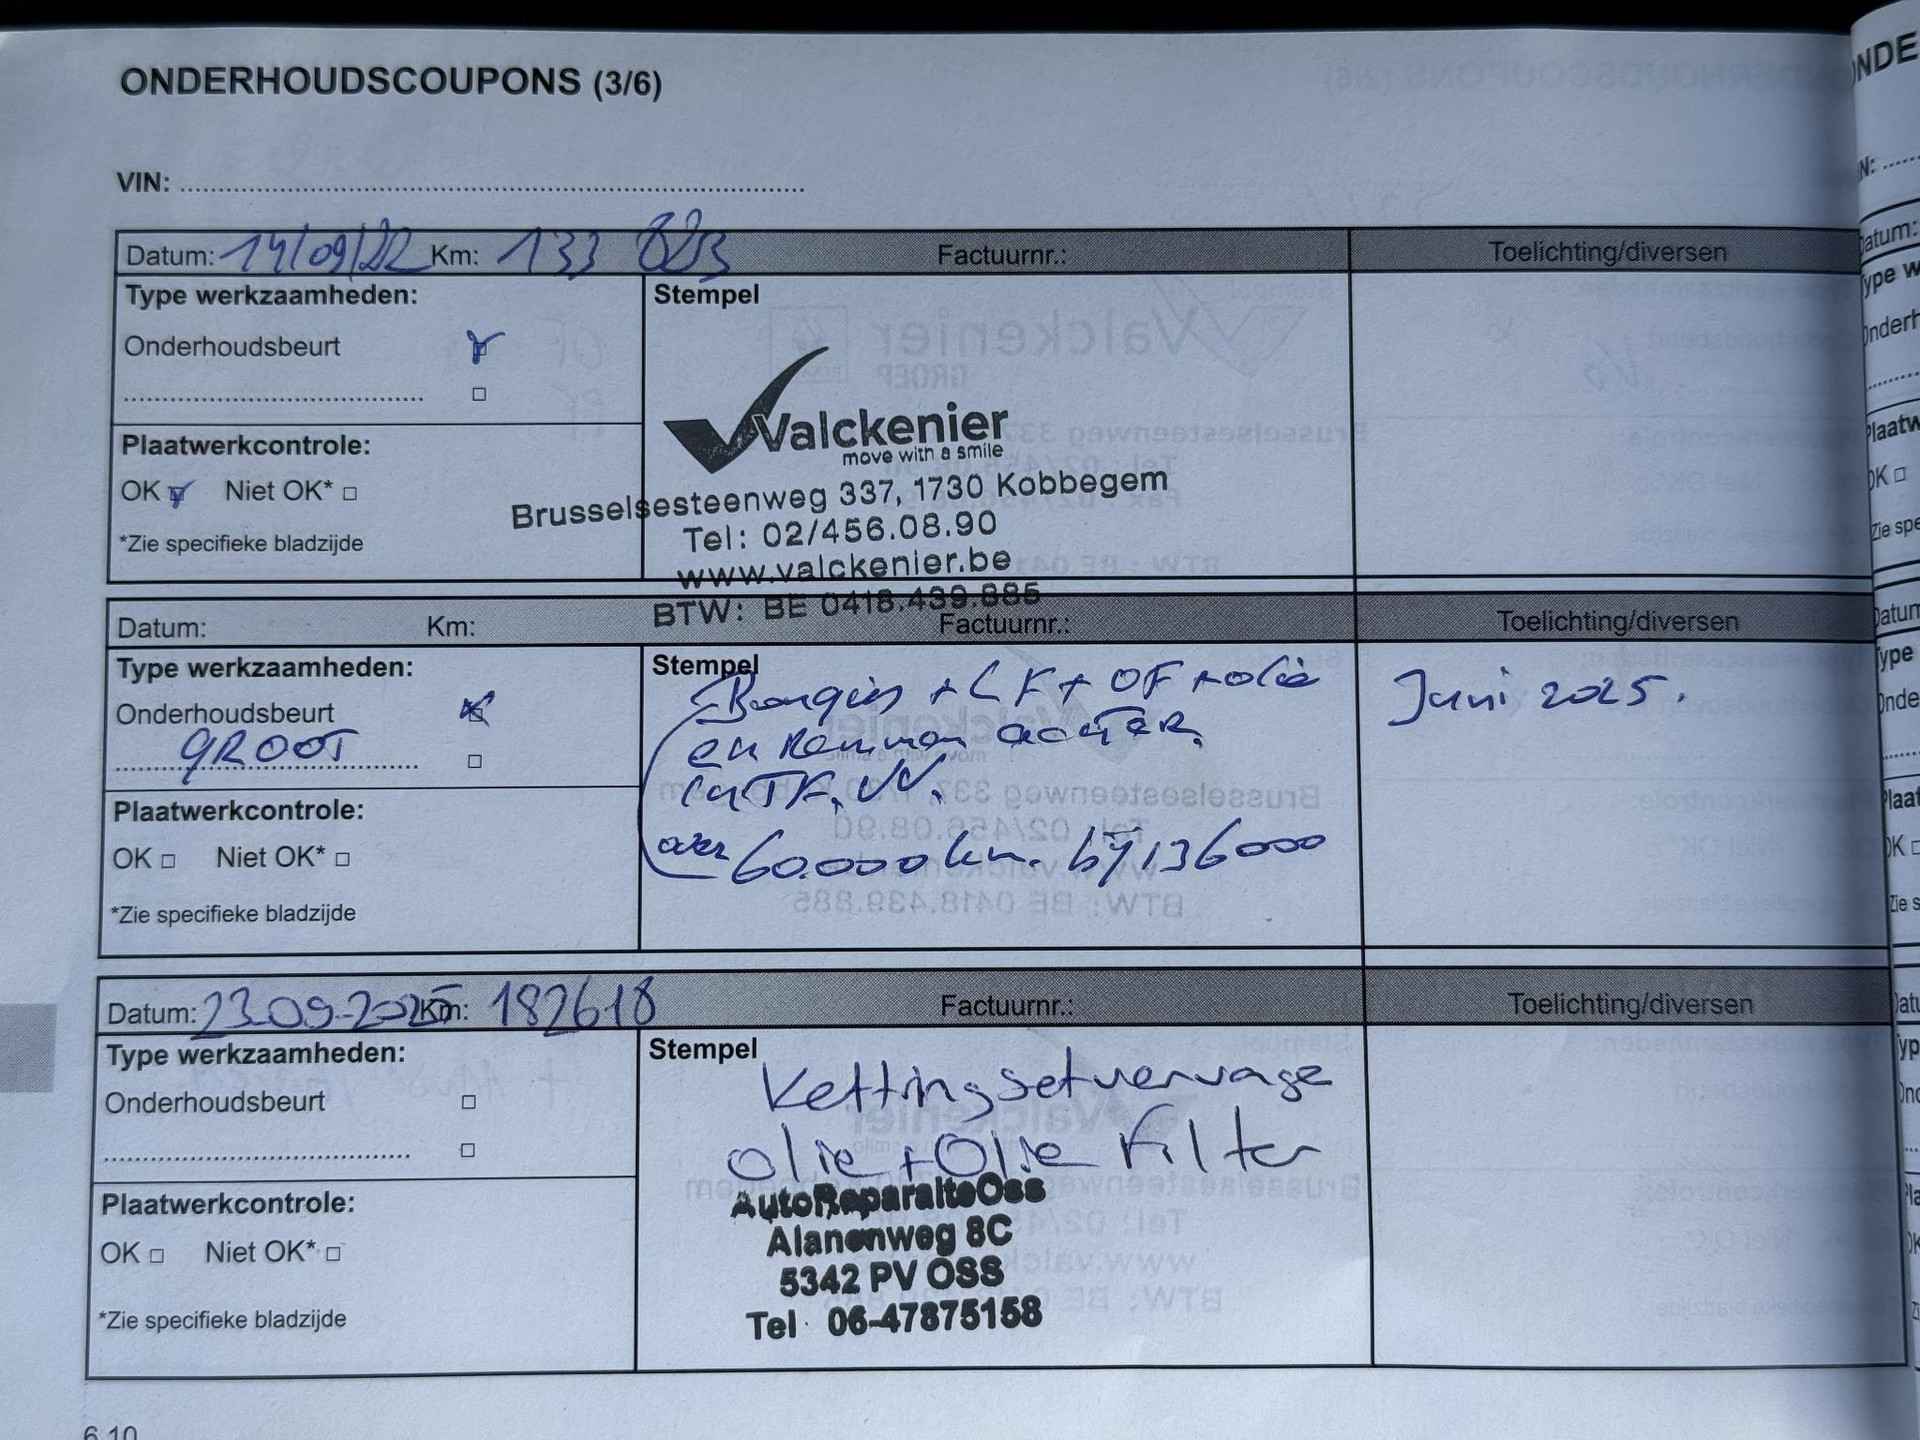 ONDERHOUDSCOUPONS (3/6)
VIN:
Datum: 14/09/22 Km: 133 823 Factuurnr.: Toelichting/diversen
Type werkzaamheden: Stempel
Onderhoudsbeurt
Valckenier
move with a smile
Plaatwerkcontrole:
OK Niet OK*
Brusselsesteenweg 337, 1730 Kobbegem
Tel: 02/456.08.90
*Zie specifieke bladzijde
www.valckenier.be
BTW: BE 0418.439.885
Datum: Km: Factuurnr.: Toelichting/diversen
Type werkzaamheden: Stempel
Bougies + LF + OF + olie Juni 2025.
Onderhoudsbeurt
en Remmen achter.
GROOT
INTR. VV.
Plaatwerkcontrole:
OK Niet OK*
over 60.000 km. bij 136000
*Zie specifieke bladzijde
Datum: 23-09-2025 Km: 182618 Factuurnr.: Toelichting/diversen
Type werkzaamheden: Stempel
Kettingset vervange
Onderhoudsbeurt
olie + Olie Filter
AutoReparatieOss
Plaatwerkcontrole:
Alanenweg 8C
OK Niet OK*
5342 PV OSS
*Zie specifieke bladzijde
Tel 06-47875158
6.10